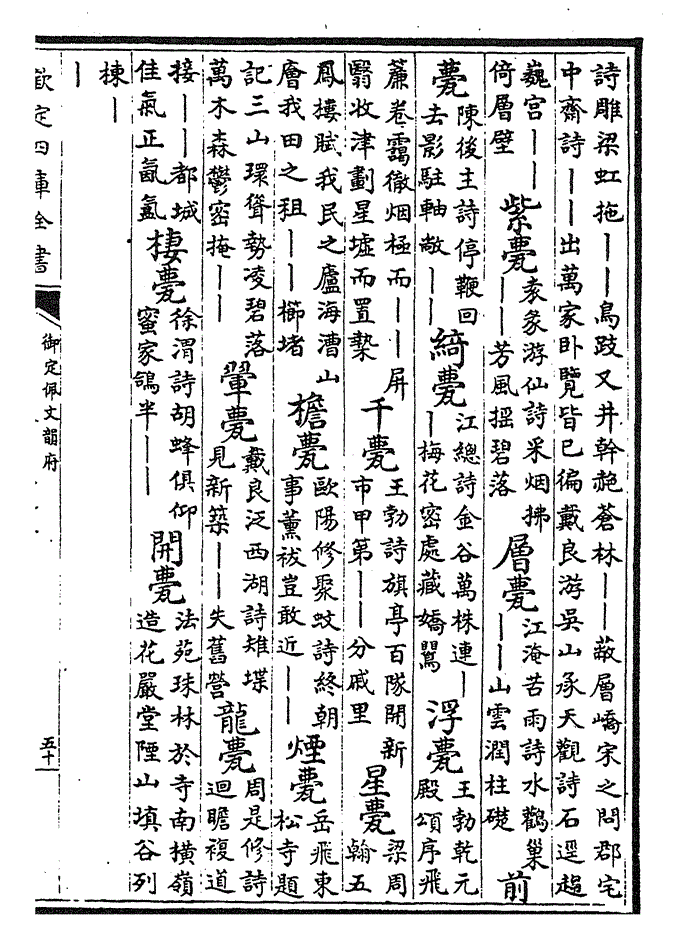 詩雕梁虹拖——鳥跂又井幹赩蒼林——蔽層嶠宋之問郡宅
中齋詩——出萬家卧覽皆已徧戴良游吳山承天觀詩石逕趨
巍宮——
倚層壁
紫甍
袁彖游仙詩采烟拂
——芳風摇碧落
層甍
江淹苦雨詩水鸛巢
——山雲潤柱礎
前
甍
陳後主詩停鞭回
去影駐軸敞——
綺甍
江總詩金谷萬株連—
—梅花密處藏嬌鸎
浮甍
王勃乾元
殿頌序飛
簾卷靄徹烟極而——屏
翳收津劃星墟而置槷
千甍
王勃詩旗亭百隊開新
市甲第——分戚里
星甍
梁周
翰五
鳳樓賦我民之廬海漕山
廥我田之租——櫛堵
檐甍
歐陽修聚蚊詩終朝
事薰祓豈敢近——
煙甍
岳飛東
松寺題
記三山環聳勢凌碧落
萬木森鬱密掩——
翬甍
戴良泛西湖詩雉堞
見新築——失舊營
龍甍
周是修詩
迴瞻複道
接——都城
佳氣正氤氳
棲甍
徐渭詩胡蜂俱仰
蜜家鴿半——
開甍
法苑珠林於寺南横嶺
造花嚴堂陻山填谷列
棟—
—
欽定四庫全書
御定佩文韻府
五十